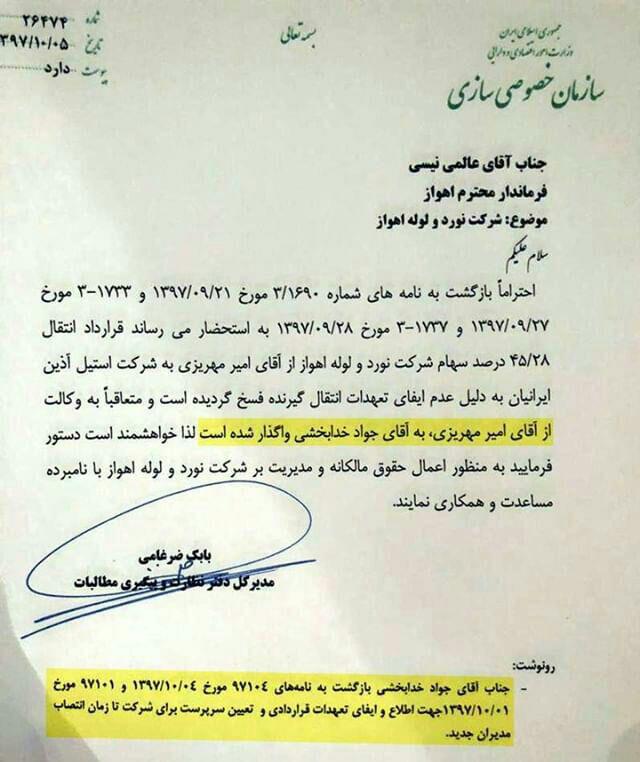 جمهوری اسلامی ایران
وزارت امور اقتصادی و دارایی
سازمان خصوصی سازی
بسمه تعالی
شماره ۲۶۴۷۴
تاریخ ۱۳۹۷/۱۰/۰۵
پیوست دارد
جناب آقای عالمی نیسی
فرماندار محترم اهواز
موضوع: شرکت نورد و لوله اهواز
سلام علیکم
احتراماً بازگشت به نامه های شماره ۳/۱۶۹۰ مورخ ۱۳۹۷/۰۹/۲۱ و ۱۷۳۳-۳ مورخ
۱۳۹۷/۰۹/۲۷ و ۱۷۳۷-۳ مورخ ۱۳۹۷/۰۹/۲۸ به استحضار می رساند قرارداد انتقال
۴۵/۲۸ درصد سهام شرکت نورد و لوله اهواز از آقای امیر مهریزی به شرکت استیل آذین
ایرانیان به دلیل عدم ایفای تعهدات انتقال گیرنده فسخ گردیده است و متعاقباً به وکالت
از آقای امیر مهریزی، به آقای جواد خدابخشی واگذار شده است لذا خواهشمند است دستور
فرمایید به منظور اعمال حقوق مالکانه و مدیریت بر شرکت نورد و لوله اهواز با نامبرده
مساعدت و همکاری نمایند.
بابک ضرغامی
مدیرکل دفتر نظارت و پیگیری مطالبات
رونوشت:
- جناب آقای جواد خدابخشی بازگشت به نامه‌های ۹۷۱۰۴ مورخ ۱۳۹۷/۱۰/۰۴ و ۹۷۱۰۱ مورخ
۱۳۹۷/۱۰/۰۱جهت اطلاع و ایفای تعهدات قراردادی و تعیین سرپرست برای شرکت تا زمان انتصاب
مدیران جدید.